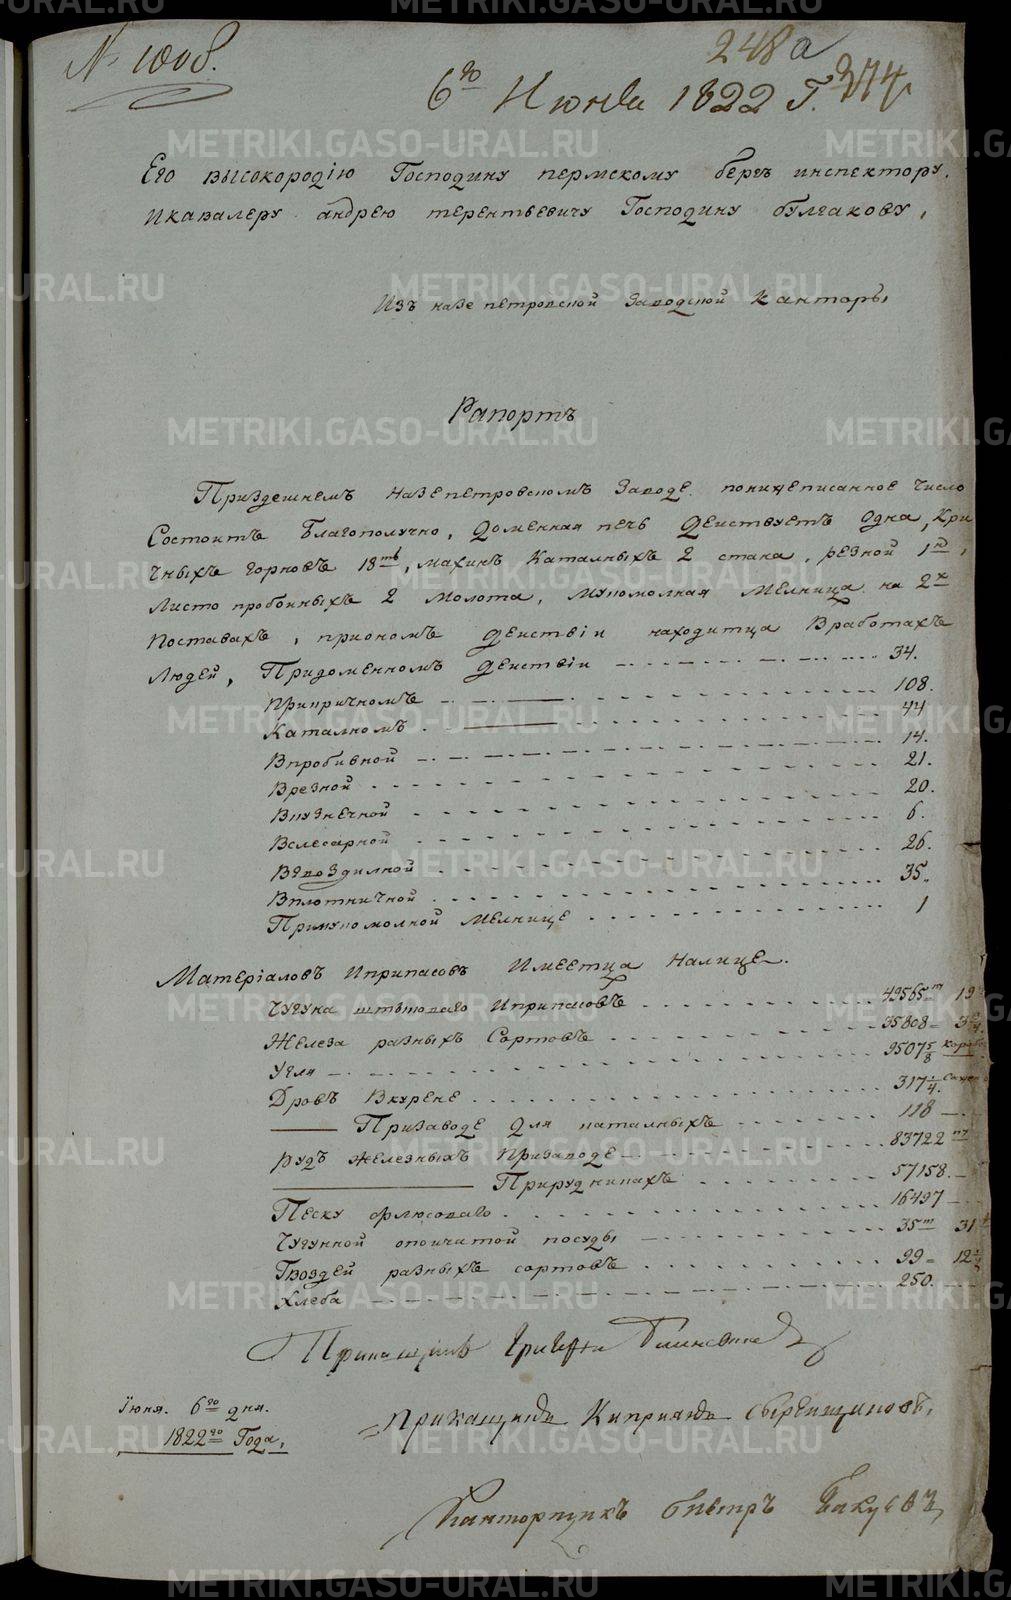 N. 1008.
248а
6го Июня 1822 Г. 374
Его высокородію Господину пермскому бергъ инспектору,
Икавалеру андрею терентьевичу Господину булгакову,
Изъ назе петровской Заводской Канторы
Рапортъ
Приздешнемъ назепетровскомъ Заводе. понижеписанное число
Состоитъ благополучно, Доменная печь Действуетъ одна, Кри
чныхъ горновъ 18ть, махинъ Каталныхъ 2 стана, резной 1н,
Листо пробойныхъ 2 молота, мукомолная мелница на 2х
поставахъ, приономъ действіи находитца вработахъ
людей, Придоменномъ Действіи 34.
прикричномъ 108.
Каталномъ 44
Впробивной 14.
Врезной 21.
Вкузнечной 20.
Вслесарной 6.
Вгвоздилной 26.
Вплотничной 35.
Примукомолной мелнице 1
Матеріаловъ Иприпасовъ Имеетца Налице.
Чугуна штыковаго Иприпасовъ 49565п 19
Железа разныхъ Сортовъ 35808
Угля 9507 5/8 коро
Дровъ Вкурене 317 1/4. саже
Призаводе для каталныхъ 118
Рудъ железныхъ Призаводе 83722
Прирудникахъ 57158.
Песку флюсоваго 16497
Чугунной опоичатой посуды 35п 31
Гвоздей разныхъ сортовъ 99 12
Хлеба 250.
Прикащикъ Григореи
Іюня. 6го дня.
1822го Года,
Прикащикъ Кипріянъ Сыреищиковъ,
Канторщикъ Петръ
METRIKI.GASO-URAL.RU